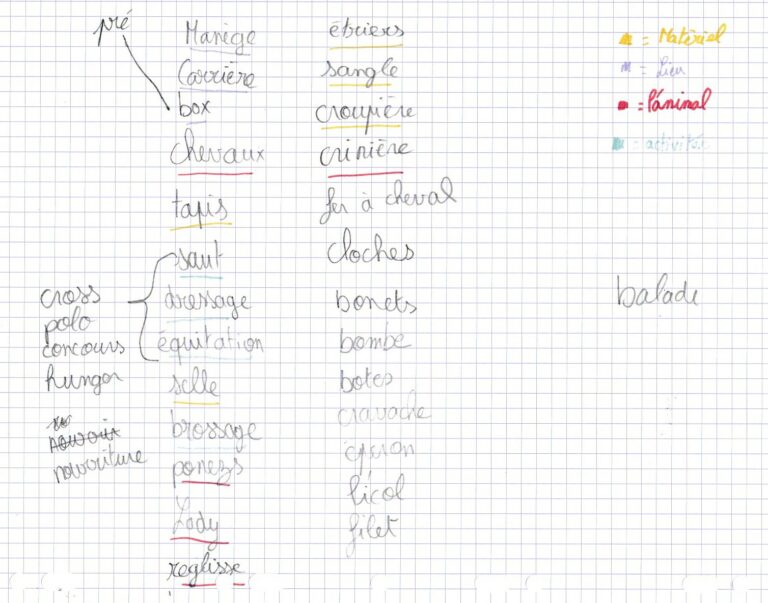 pré
Manège
Carrière
box
chevaux
tapis
saut
dressage
équitation
selle
brossage
poneys
Lady
reglisse
cross
polo
concours
hunger
nouvriture
étriers
sangle
croupière
crinière
fer à cheval
cloches
bonets
bombe
botes
cravache
licol
filet
= Matériel
= Lieu
= l'animal
= activités
balade